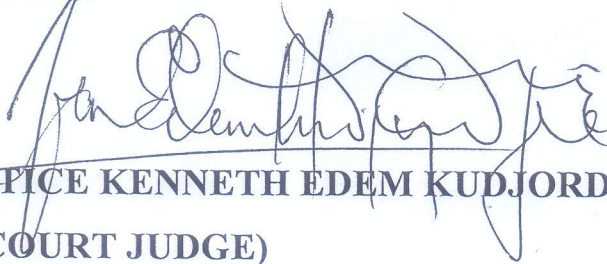 TICE KENNETH EDEM KUDJORD
COURT JUDGE)